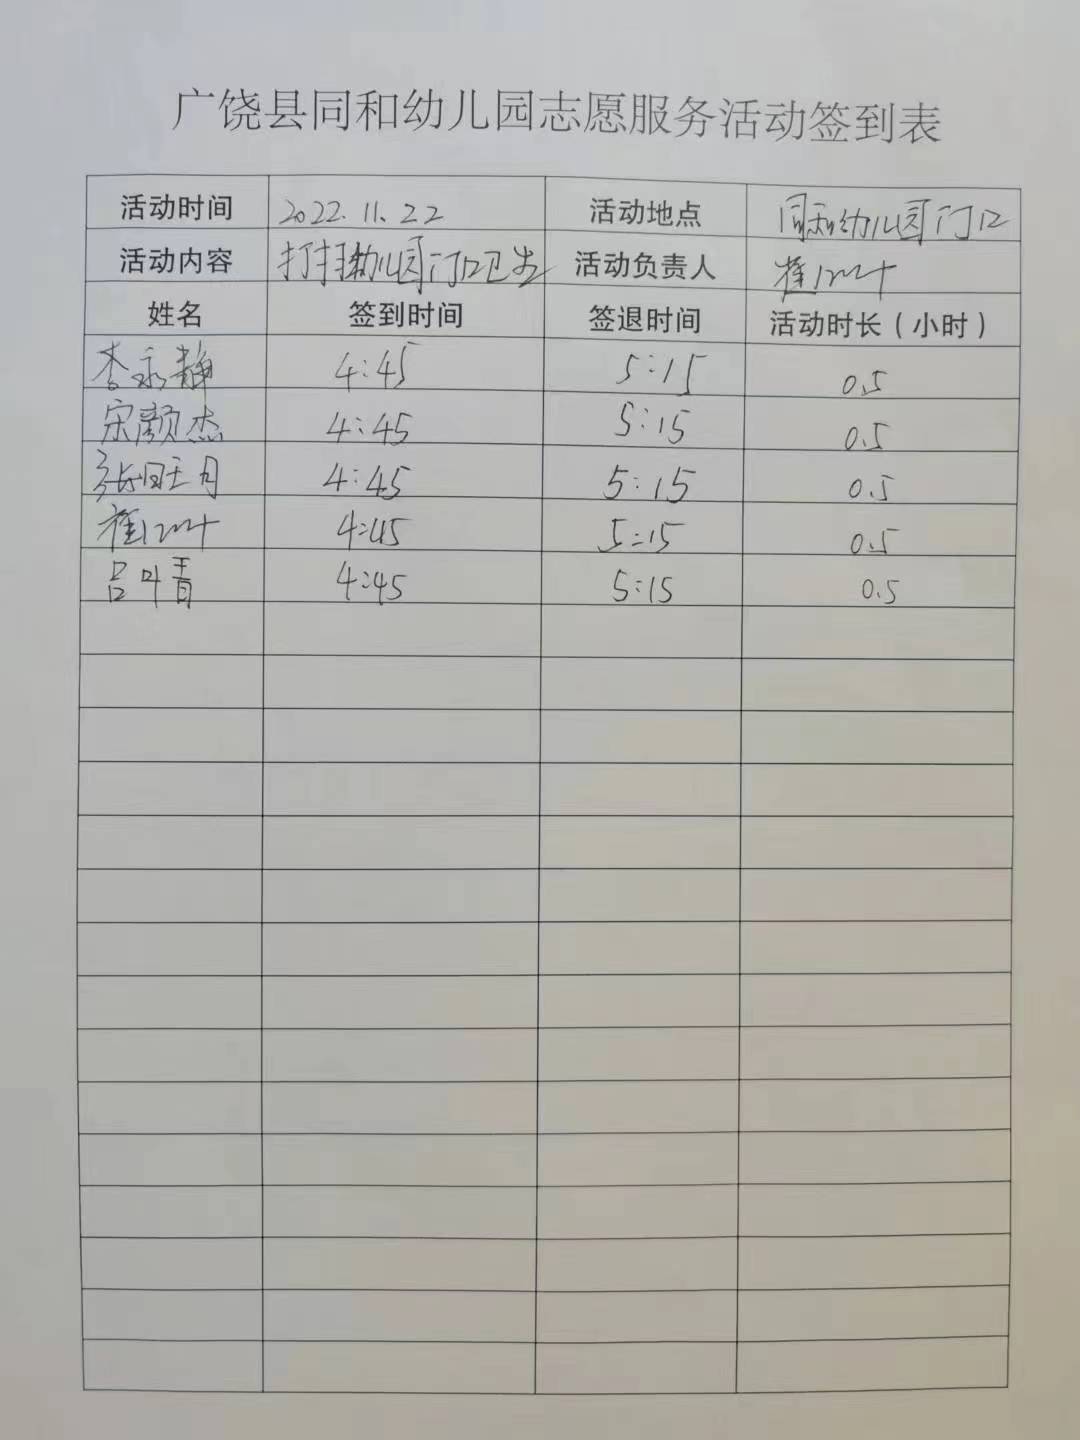 广饶县同和幼儿园志愿服务活动签到表
活动时间 2022.11.22 活动地点 同和幼儿园门口
活动内容 打扫幼儿园门口卫生 活动负责人
姓名 签到时间 签退时间 活动时长（小时）
李永静 4:45 5:15 0.5
宋颜杰 4:45 5:15 0.5
张旺月 4:45 5:15 0.5
4:45 5:15 0.5
吕叶青 4:45 5:15 0.5